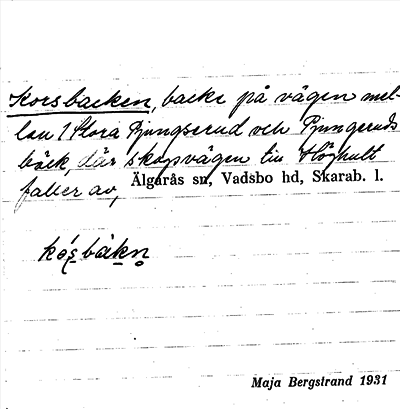 Korsbacken, backe på vägen mel-
lan 1 Stora Ljungserud och Ljungeruds
bäck, där skogsvägen till Höghult
faller av, Älgarås sn, Vadsbo hd, Skarab. l.
Maja Bergstrand 1931